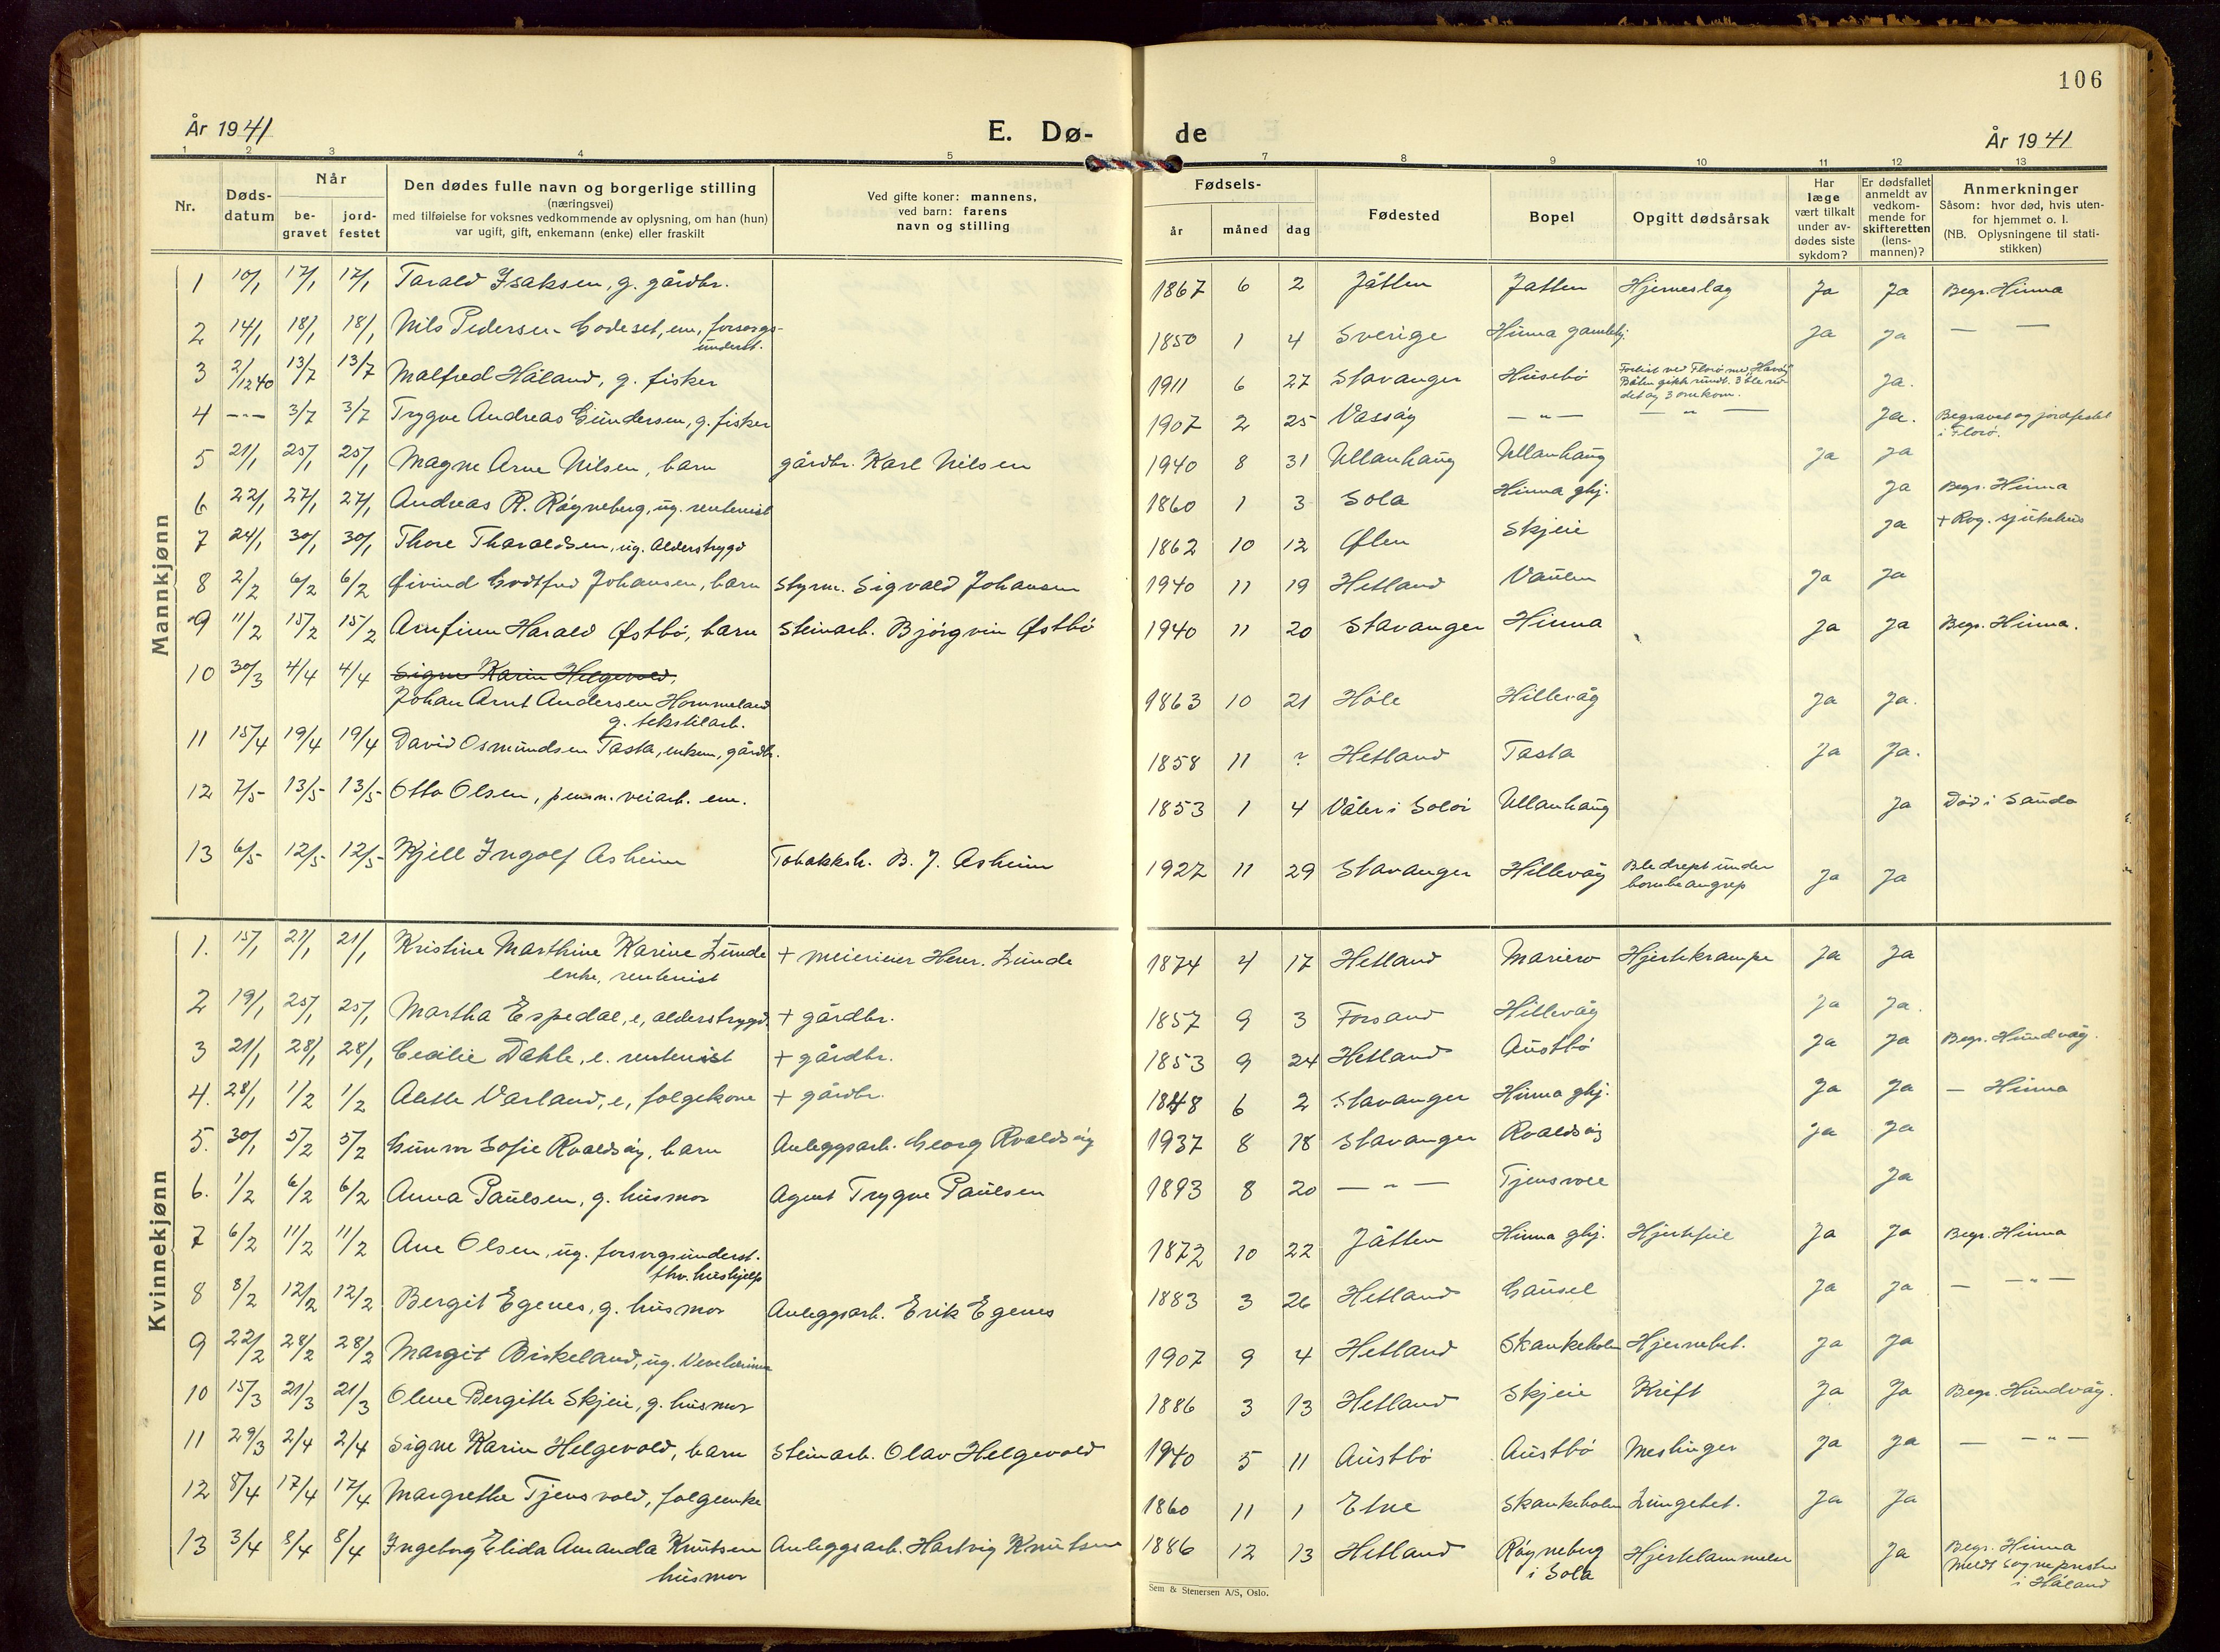 106
År 1941
E. Dø-
de
År 1941
1 2 3 4 5 7 8 9 10 11 12 13
Nr.
Døds-
datum
Når
be-
gravet
jord-
festet
Den dødes fulle navn og borgerlige stilling
(næringsvei)
med tilføielse for voksnes vedkommende av oplysning, om han (hun)
var ugift, gift, enkemann (enke) eller fraskilt
Ved gifte koner: mannens,
ved barn: farens
navn og stilling
Fødsels-
år måned dag
Fødested
Bopel
Opgitt dødsårsak
Har
læge
vært tilkalt
under av-
dødes siste
sykdom?
Er dødsfallet
anmeldt av
vedkom-
mende for
skifteretten
(lens-
mannen)?
Anmerkninger
Såsom: hvor død, hvis uten-
for hjemmet o. l.
(NB. Oplysningene til stati-
stikken)
Mannkjønn
1 10/1 17/1 17/1 Tarald Isaksen, g. gårdbr. 1867 6 2 Jåtten Jatten Hjerneslag Ja Ja Begr. Hinna
2 14/1 18/1 18/1 Nils Pedersen Godeset, em, forsorgs-
underst. 1850 1 4 Sverige Hinna gamlehj. Ja Ja — —
3 2/12 40 13/7 13/7 Malfred Håland, g. fisker 1911 6 27 Stavanger Husebö Forlist ved Florö med
Båten gikk rundt. 3 ble red-
det og 3 omkom. Ja.
4 -"- 3/7 3/7 Trygve Andreas Gundersen, g. fisker 1907 2 25 Vassöy — " — — " — Ja. Begravet og jordfestet
i Florö.
5 21/1 25/1 25/1 Magne Arne Nilsen, barn gårdbr. Karl Nilsen 1940 8 31 Ullanhaug Ullanhaug Ja Ja
6 22/1 27/1 27/1 Andreas R. Röyneberg, ug. rentenist 1860 1 3 Sola Hinna ghj. Ja Begr. Hinna
7 24/1 30/1 30/1 Thore Tharaldsen, ug. alderstrygd 1862 10 12 Ølen Skjeie Ja + Rog. sjukehus
8 2/2 6/2 6/2 Øivind Godtfred Johansen, barn Styrm. Sigvald Johansen 1940 11 19 Hetland Vaulen Ja Ja
9 11/2 15/2 15/2 Arnfinn Harald Østbö, barn Steinarb. Björgvin Østbö 1940 11 20 Stavanger Hinna Ja Ja Begr. Hinna.
10 30/3 4/4 4/4 Signe Karin Helgevold,
Johan Arnt Andersen Hommeland
g. tekstilarb. 1863 10 21 Höle Hillevåg Ja Ja.
11 15/4 19/4 19/4 David Osmundsen Tasta, enkem, gårdbr. 1858 11 ? Hetland Tasta Ja Ja.
12 7/5 13/5 13/5 Otto Olsen, pensn. veiarb. em. 1853 1 4 Våler i Solör Ullanhaug Ja Död i Sauda
13 6/5 12/5 12/5 Kjell Ingolf Asheim Tobakksh. B. J. Asheim 1927 11 29 Stavanger Hillevåg Ble drept under
bombeangrep Ja Ja
Kvinnekjønn
1. 15/1 21/1 21/1 Kristine Marthine Karine Lunde
enke, rentenist + meierieier Henr. Lunde 1874 4 17 Hetland Mariero Hjertekrampe Ja Ja
2 19/1 25/1 25/1 Martha Espedal, e, alderstrygd + gårdbr. 1857 9 3 Forsand Hillevåg Ja Ja.
3 21/1 28/1 28/1 Cecilie Dahle, e. rentenist + gårdbr. 1853 9 24 Hetland Austbö Ja Ja Begr. Hundvåg.
4. 28/1 1/2 1/2 Alette Varland, e, folgekone + gårdbr. 1848 6 2 Stavanger Hinna ghj. Ja Ja — Hinna
5. 30/1 5/2 5/2 Gunvor Sofie Roaldsöy, barn Anleggsarb. Georg Roaldsöy 1937 8 18 Stavanger Roaldsöy Ja Ja
6. 1/2 6/2 6/2 Anna Paulsen, g. husmor Agent Trygve Paulsen 1893 8 20 — " — Tjensvoll Ja
7 6/2 11/2 11/2 Ane Olsen, ug. forsorgsunderst.
fhv. hushjelp 1872 10 22 Jåtten Hinna ghj. Hjertefeil Ja Ja Begr. Hinna
8 8/2 12/2 12/2 Bergit Egenes, g. husmor Anleggsarb. Erik Egenes 1883 3 26 Hetland Gausel Ja Ja — — " —
9 22/2 28/2 28/2 Margit Birkeland, ug. Vevelærinne 1907 9 4 Hetland Skankeholm Hjernebet. Ja Ja
10 15/3 21/3 21/3 Olene Bergitte Skjeie, g. husmor 1886 3 13 Hetland Skjeie Kreft Ja Ja Begr. Hundvåg.
11 29/3 2/4 2/4 Signe Karin Helgevold, barn Steinarb. Olav Helgevold 1940 5 11 Austbö Austbö Meslinger Ja Ja — — " —
12 8/4 17/4 17/4 Margrethe Tjensvold, folgeenke 1860 11 1 Etne Skankeholm Lungebet. Ja Ja
13 3/4 8/4 8/4 Ingeborg Elida Amanda Knutsen
husmor Anleggsarb. Hartvig Knutsen 1886 12 13 Hetland Röyneberg
i Sola Hjertelammelse Ja Begr. Hinna
Meldt sognepresten
i Håland
Sem & Stenersen A/S, Oslo.